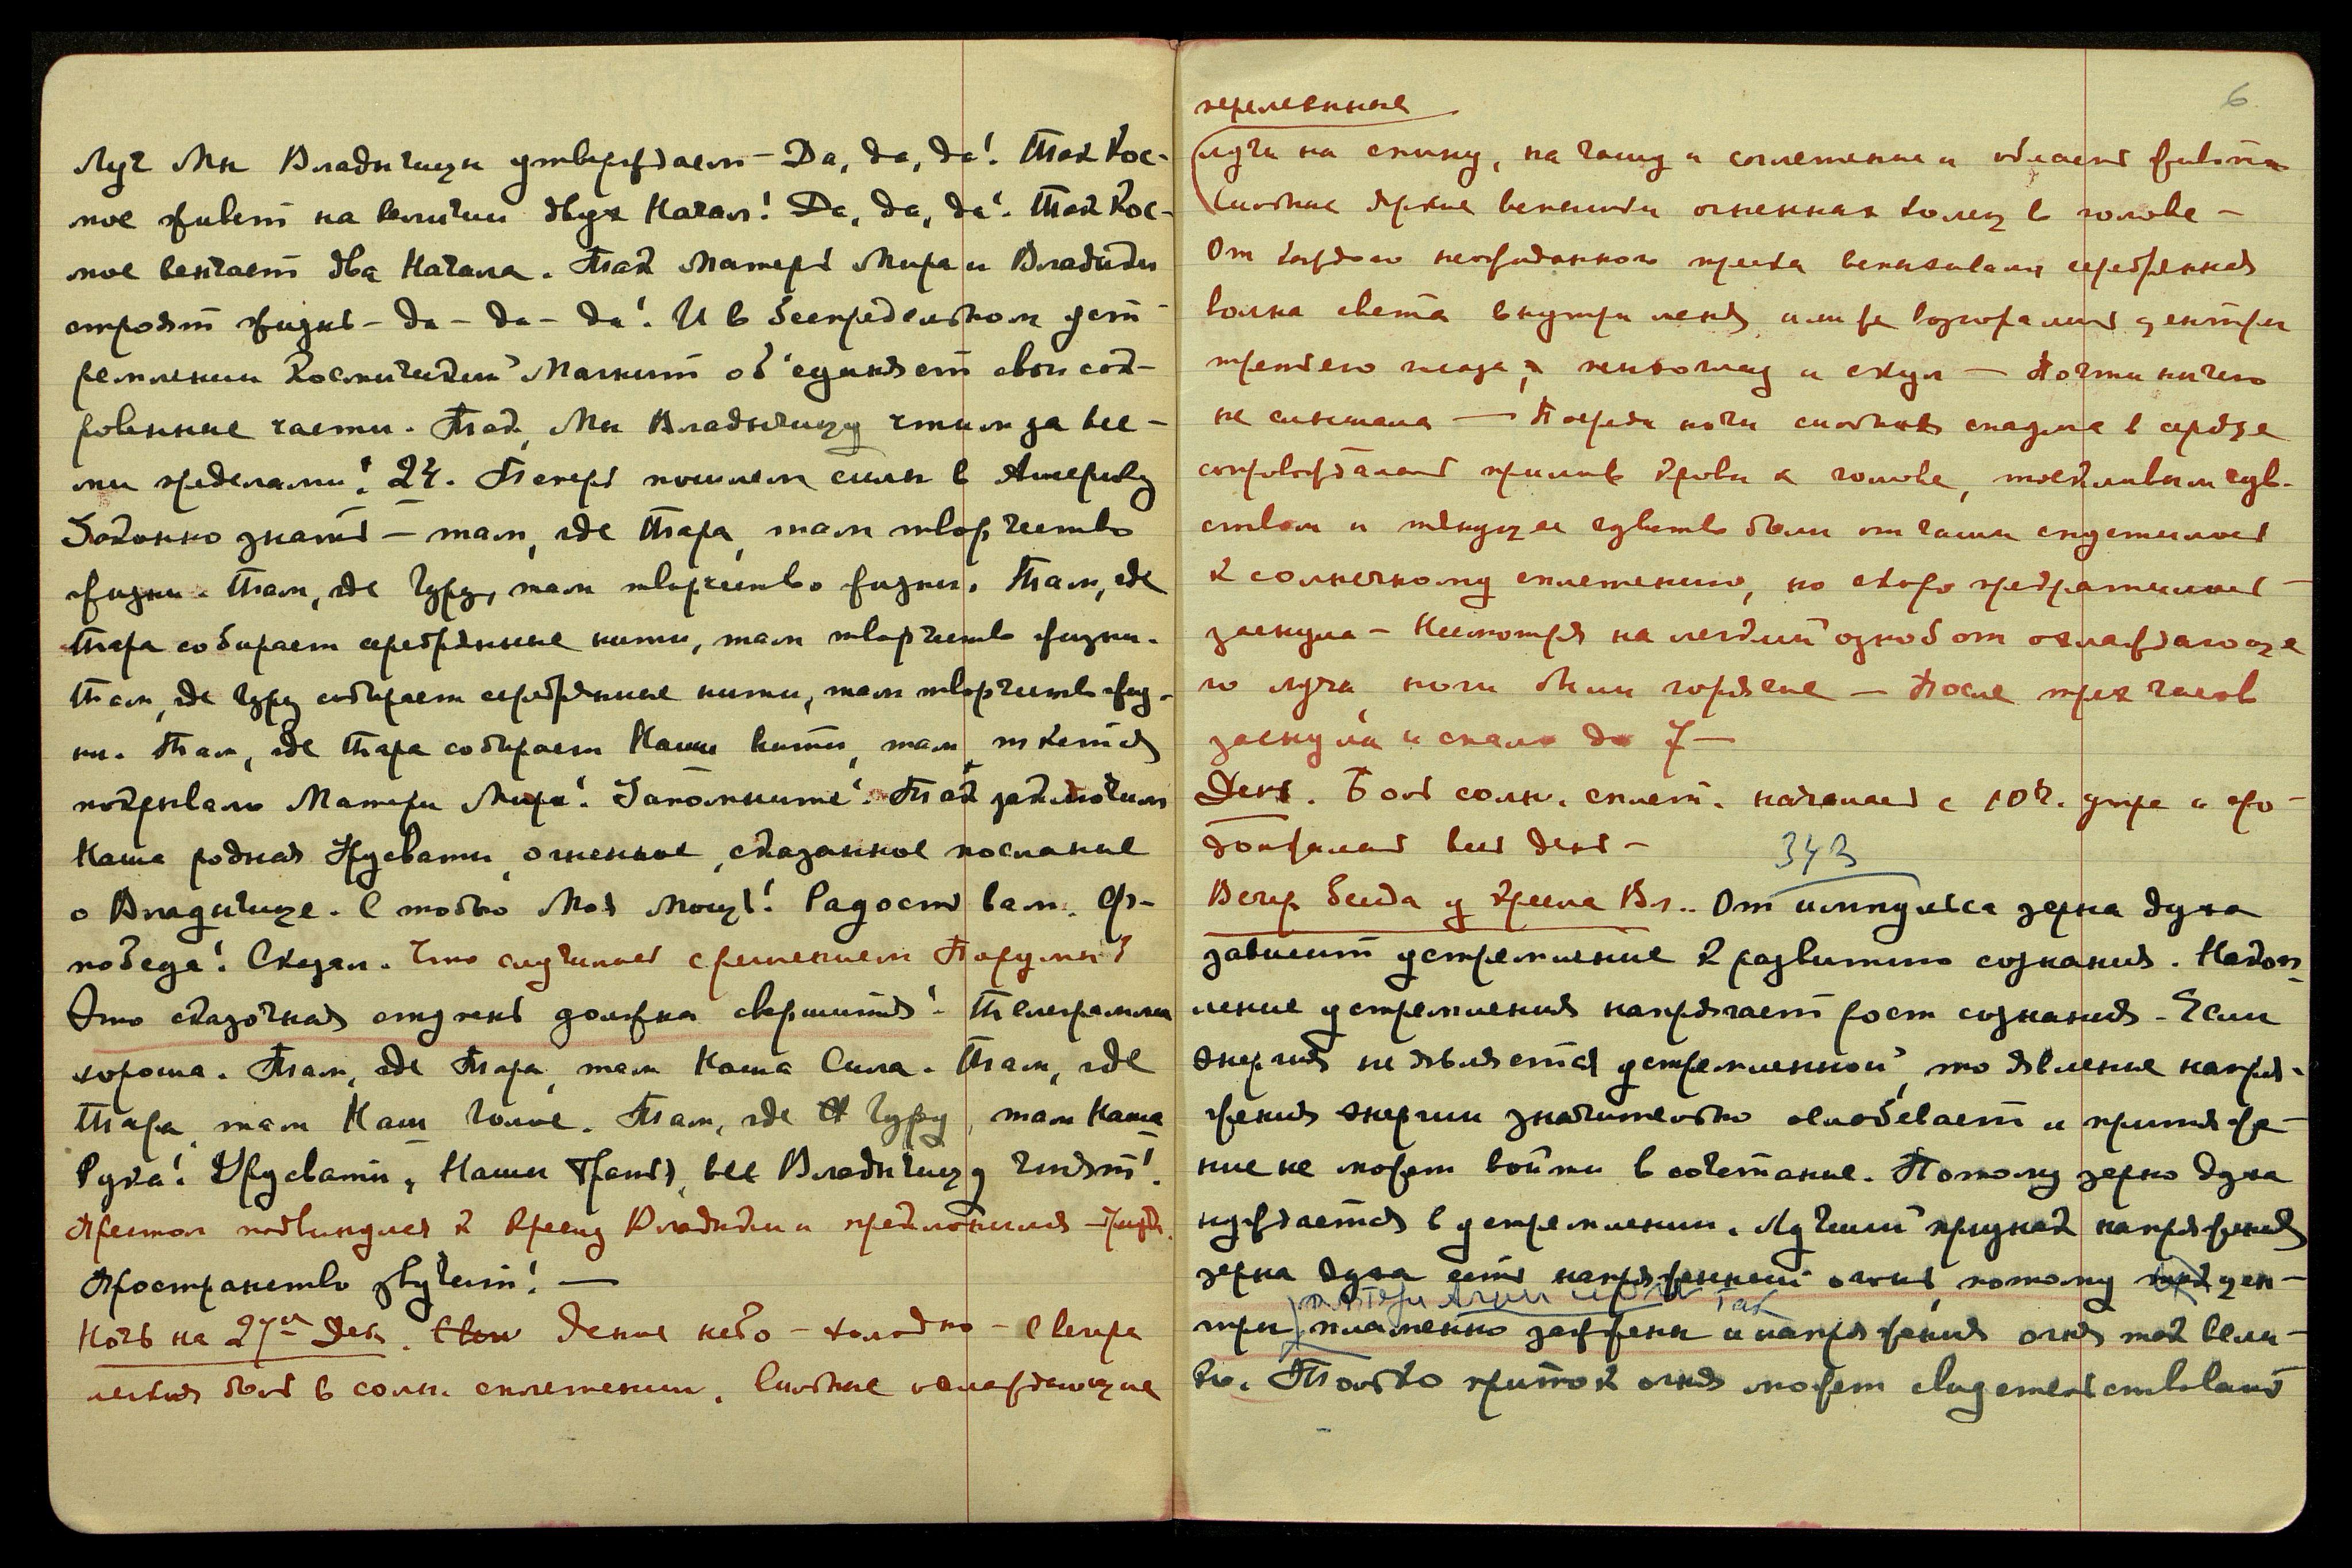 Луч Мы Владычицы утверждаем — Да, да, да! Так Кос-
мос живет на величии двух Начал! Да, да, да! Так Кос-
мос венчает два Начала. Так Матерь Мира и Владыки
строят жизнь — да — да — да! И в беспредельном уст-
ремлении Космический Магнит об'единяет свои сок-
ровенные части. Так, Мы Владычицу чтим за все-
ми пределами! 24. Теперь пошлем силы в Америку
Законно знать — там, где Тара, там творчество
жизни. Там, где Гуру, там творчество жизни. Там, где
Тара собирает серебрянные нити, там творчество жизни.
Там, где Гуру собирает серебрянные нити, там творчество жиз-
ни. Там, где Тара собирает Наши нити, там ткется
покрывало Матери Мира! Запомните! Так заключим
Наша родная Урусвати, огненное, сказанное послание
о Владычице. С тобою Моя Мощь! Радость вам. Ф-
победа! Сказал. Что случилось с решением Порумы?
Это сказочная ступень должна свершиться! Телеграмма
хороша. Там, где Тара, там Наша Сила. Там, где
Тара, там Наш Голос. Там, где Гуру, там Наша
Рука! Урусвати, Наши Братья, все Владычицу чтят!
Престол подвинулся к Креслу Владыки и преклонился
Пространство звучит! —
Ночь на 27ое Дек. День небо — холодно — С вечера
легкая боль в солн. сплетении. Сильные охлаждающие
переменные
6
лучи на спину, на чашу и сплетение и область живота
Сильные яркие вспышки огненная колец в голове —
От каждого неожиданного треска вспыхивали серебрянная
волна света внутри меня, или же возгорались центры
третьего глаза, и скул — Почти ничего
не слышала — Посреди ночи сильная спазма в сердце
сопровождалась прилив крови к голове, тоскливым чув-
ством и тянущее чувство боли от чаши спустилось
к солнечному сплетению, но скоро прекратилось —
заснула — Несмотря на легкий озноб от охлаждающе
го луча, ноги были горячие — После трех часов
заснула и спала до 7 —
День. Боль солн. сплет. началась с 10ч. утра и про-
должалась весь день —
343
Вечер беседа у Кресла Вл.. От импульса зерна духа
зависит устремление к развитию сознания. Накоп-
ление устремления напрягает рост сознания. Если
энергия не является устремленной, то явление напря-
жения энергии значительно ослабевает и притяже-
ние не может войти в сочетание. Потому зерно духа
нуждается в устремлении. Лучший признак напряжения
зерна духа есть напряженный огонь, потому так цен-
матери Агни Йоги так
тры пламенно зажжены и напряжения огня так вели-
ко. Только приток огня может свидетельствовать